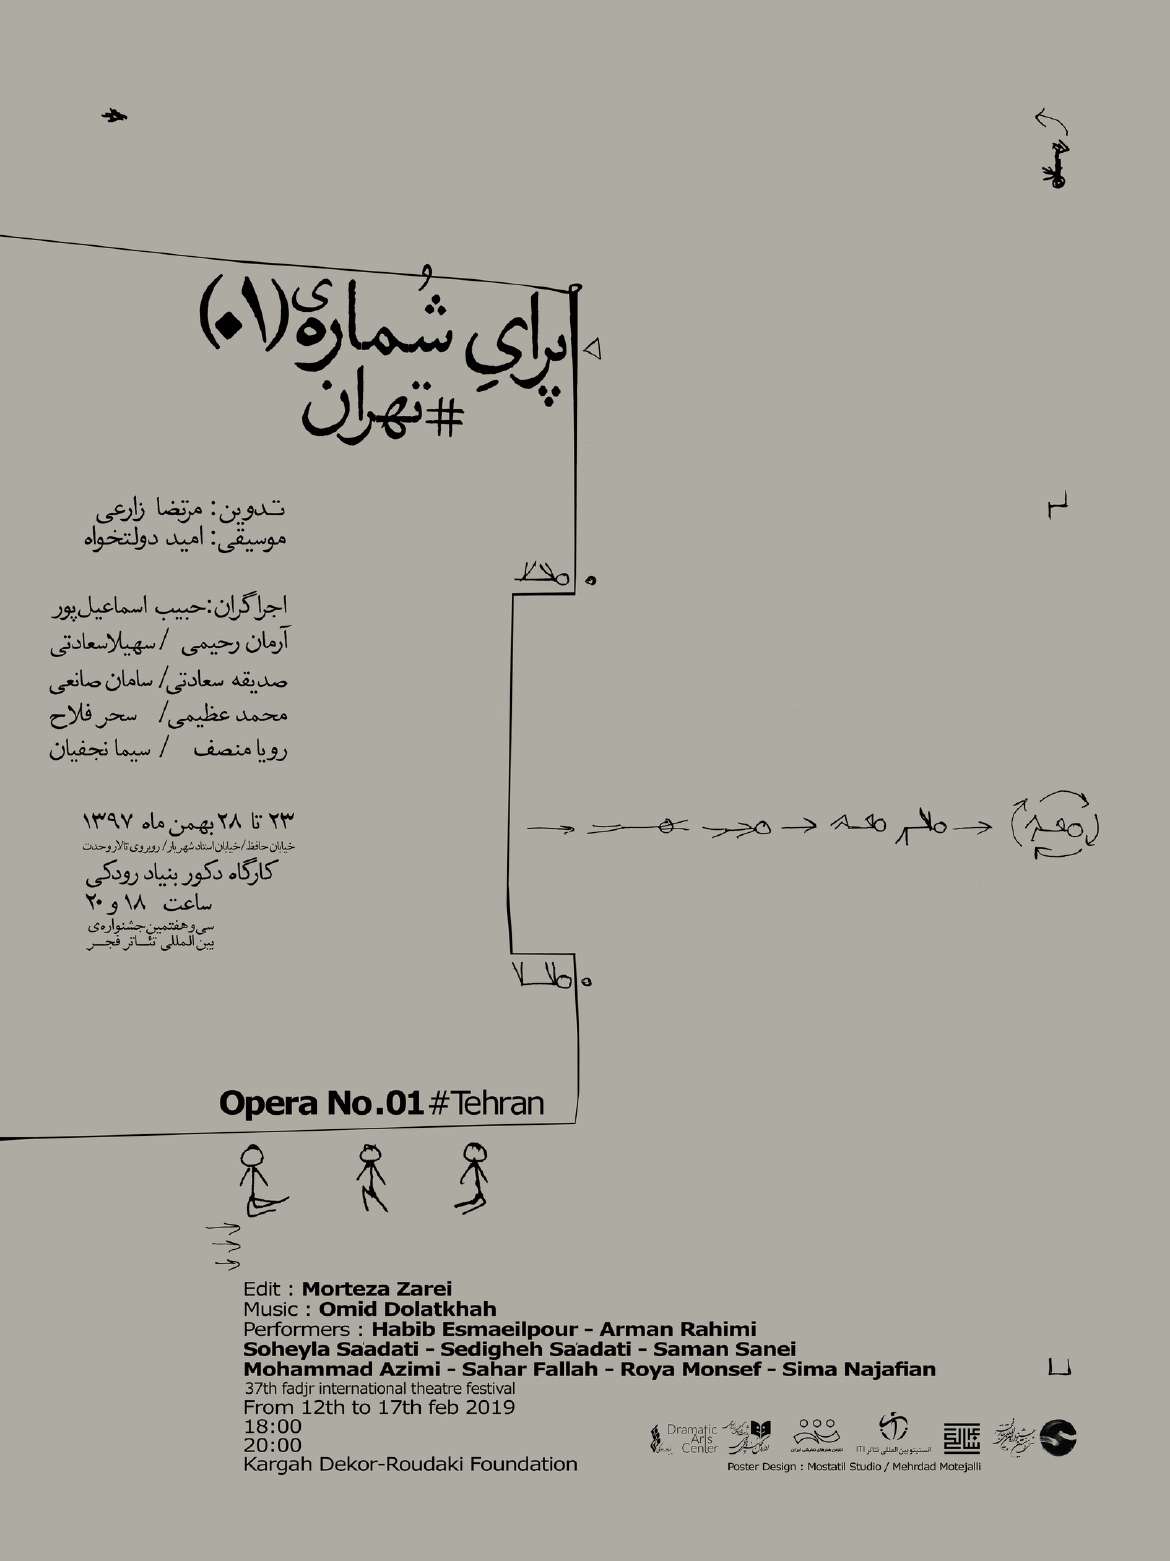 پرایِ شُماره‌ی (۰۱)
#تهران
تـدوین: مرتضا زارعی
موسیقی: امید دولتخواه
اجراگران: حبیب اسماعیل‌پور
آرمان رحیمی / سهیلا سعادتی
صدیقه سعادتی / سامان صانعی
محمد عظیمی / سحر فلاح
رویا منصف / سیما نجفیان
۲۳ تا ۲۸ بهمن ماه ۱۳۹۷
خیابان حافظ / خیابان استاد شهریار / روبروی تالار وحدت
کارگاه دکور بنیاد رودکی
ساعت ۱۸ و ۲۰
سی‌و‌هفتمین جشنواره‌ی
بین‌المللی تئـاتر فجـر
Opera No.01 #Tehran
Edit : Morteza Zarei
Music : Omid Dolatkhah
Performers : Habib Esmaeilpour - Arman Rahimi
Soheyla Saadati - Sedigheh Saadati - Saman Sanei
Mohammad Azimi - Sahar Fallah - Roya Monsef - Sima Najafian
37th fadjr international theatre festival
From 12th to 17th feb 2019
18:00
20:00
Kargah Dekor-Roudaki Foundation
Dramatic
Arts
Center
انجمن هنرهای نمایشی ایران
انستیتو بین المللی تئاتر ITI
Poster Design : Mostatil Studio / Mehrdad Motejalli